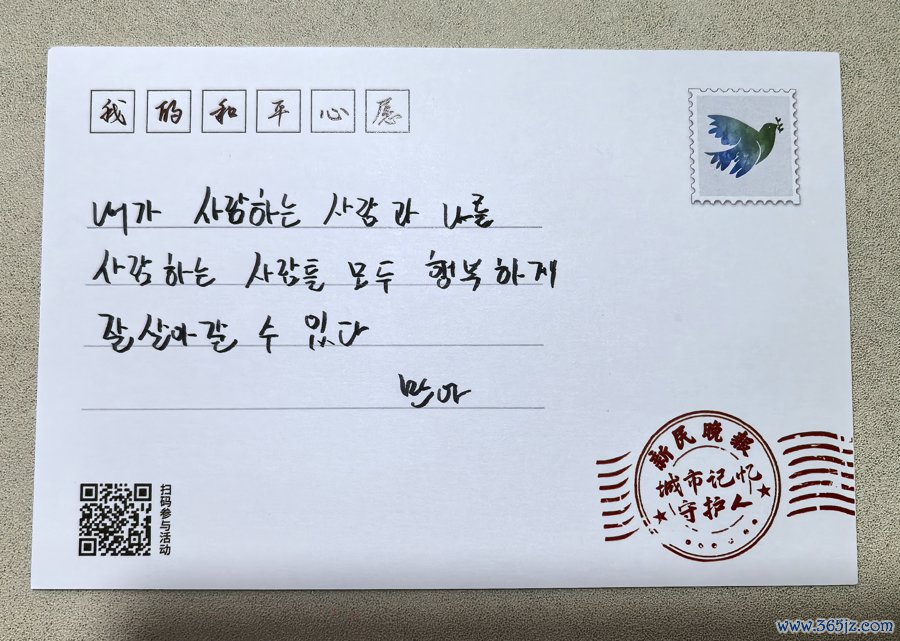 我的和平心愿
내가 사람하는 사람과 나를
사람하는 사람들 모두 행복하게
잘 살아갈 수 있다
민아
扫码参与活动
新民晚报
城市记忆
守护人
www.365jz.com